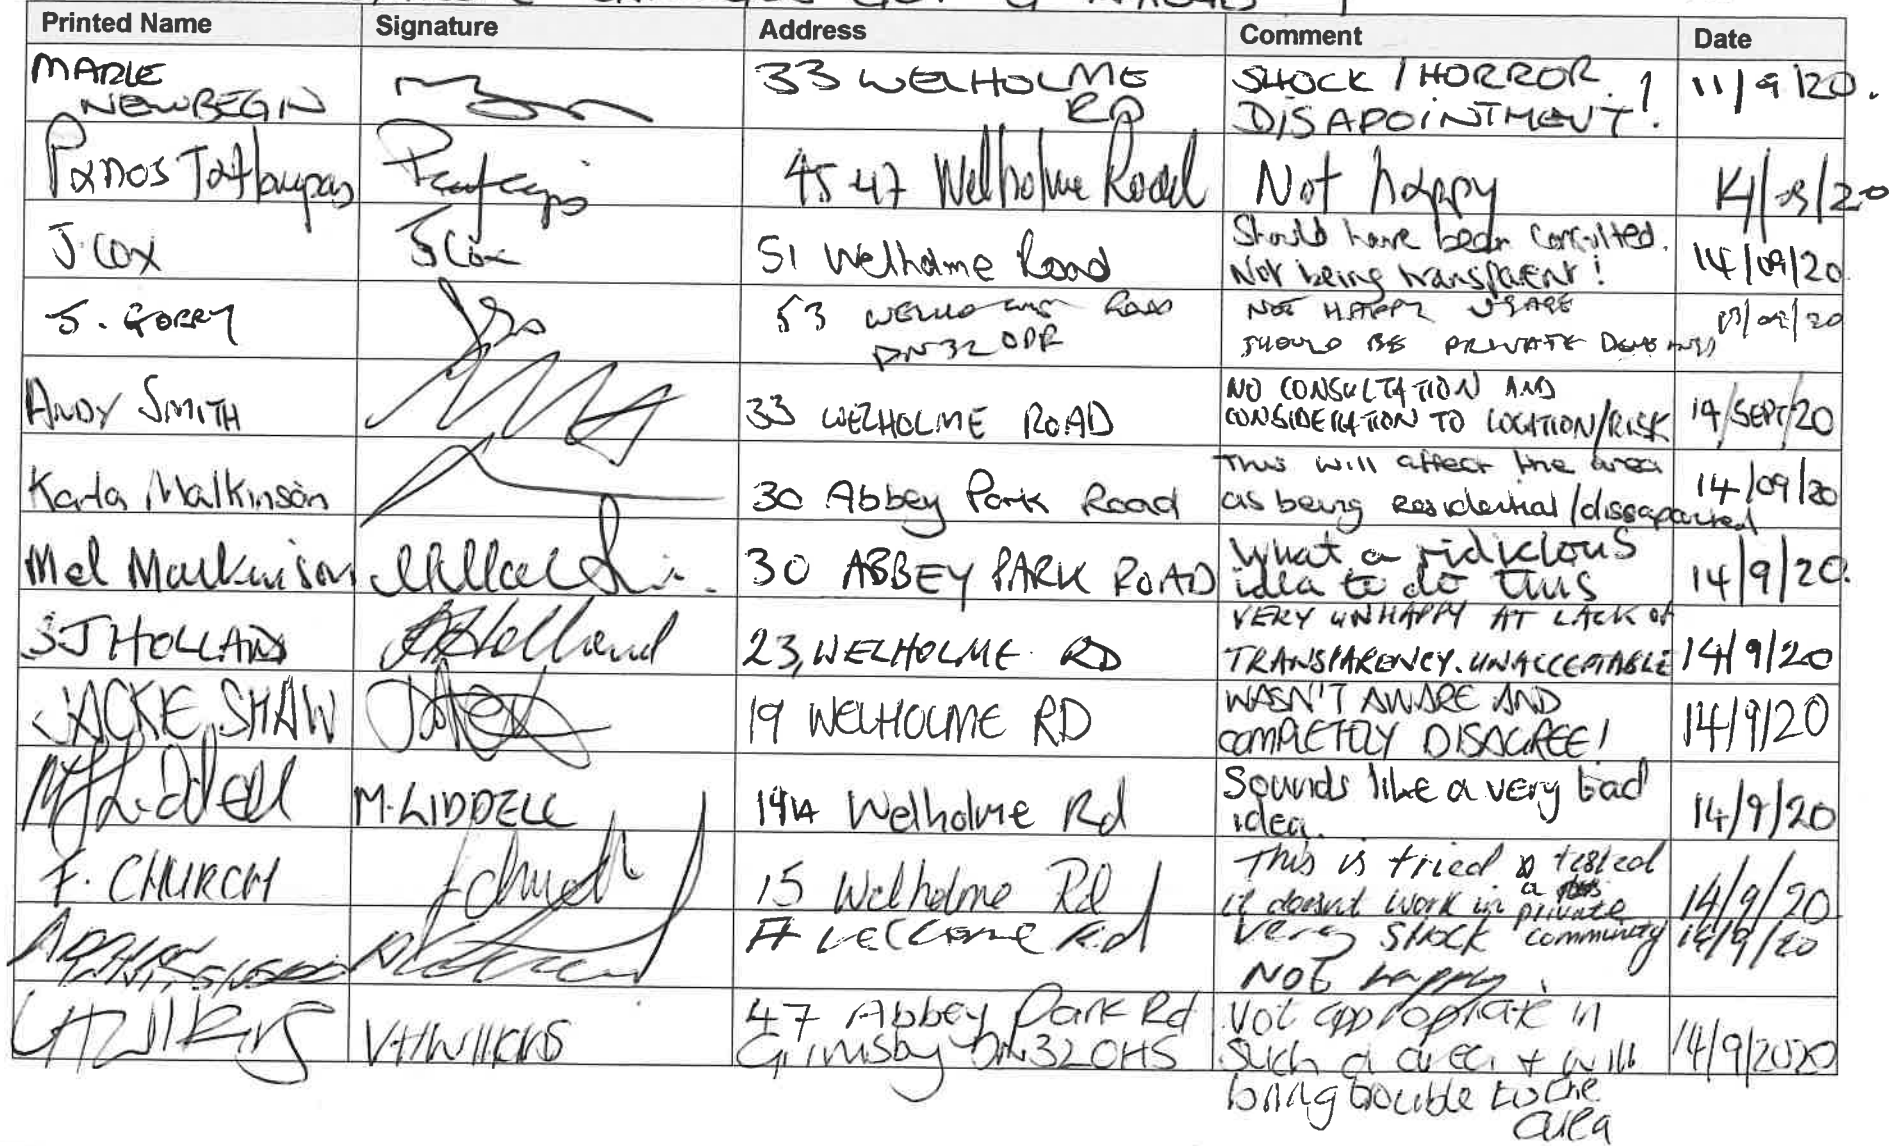 Printed Name Signature Address Comment Date
MARIE NEWBEGIN 33 WELHOLME RD SHOCK / HORROR. ! DISAPOINTMENT! 11/9/20.
Panos 45 47 Welholme Road Not happy 14/09/20
J. Cox J Cox 51 Welholme Road Should have been consulted. Not being transparent! 14/09/20
J. GORRY 53 WELHOLME ROAD DN32 0DR NOT HAPPY USAGE SHOULD BE PRIVATE /09/20
ANDY SMITH 33 WELHOLME ROAD NO CONSULTATION AND CONSIDERATION TO LOCATION/RISK 14/SEPT/20
Karla Malkinson 30 Abbey Park Road This will affect the area as being residential/dissapointed 14/09/20
Mel Malkinson 30 ABBEY PARK ROAD What a ridiclous idea to do this 14/9/20.
SJ HOLLAND Holland 23, WELHOLME RD VERY UNHAPPY AT LACK OF TRANSPARENCY. UNACCEPTABLE 14/9/20
JACKIE SHAW 19 WELHOLME RD WASN'T AWARE AND COMPLETELY DISAGREE! 14/9/20
M Liddell M. LIDDELL 19A Welholme Rd Sounds like a very bad idea. 14/9/20
F. CHURCH F Church 15 Welholme Rd This is tried & tested it doesnt work in a private community 14/9/20
Rd Very SHOCK NOT happy. 14/9/20
VH WILKINS 47 Abbey Park Rd Grimsby DN32 0HS Not appropriate in such a area + will bring trouble to the area 14/9/2020